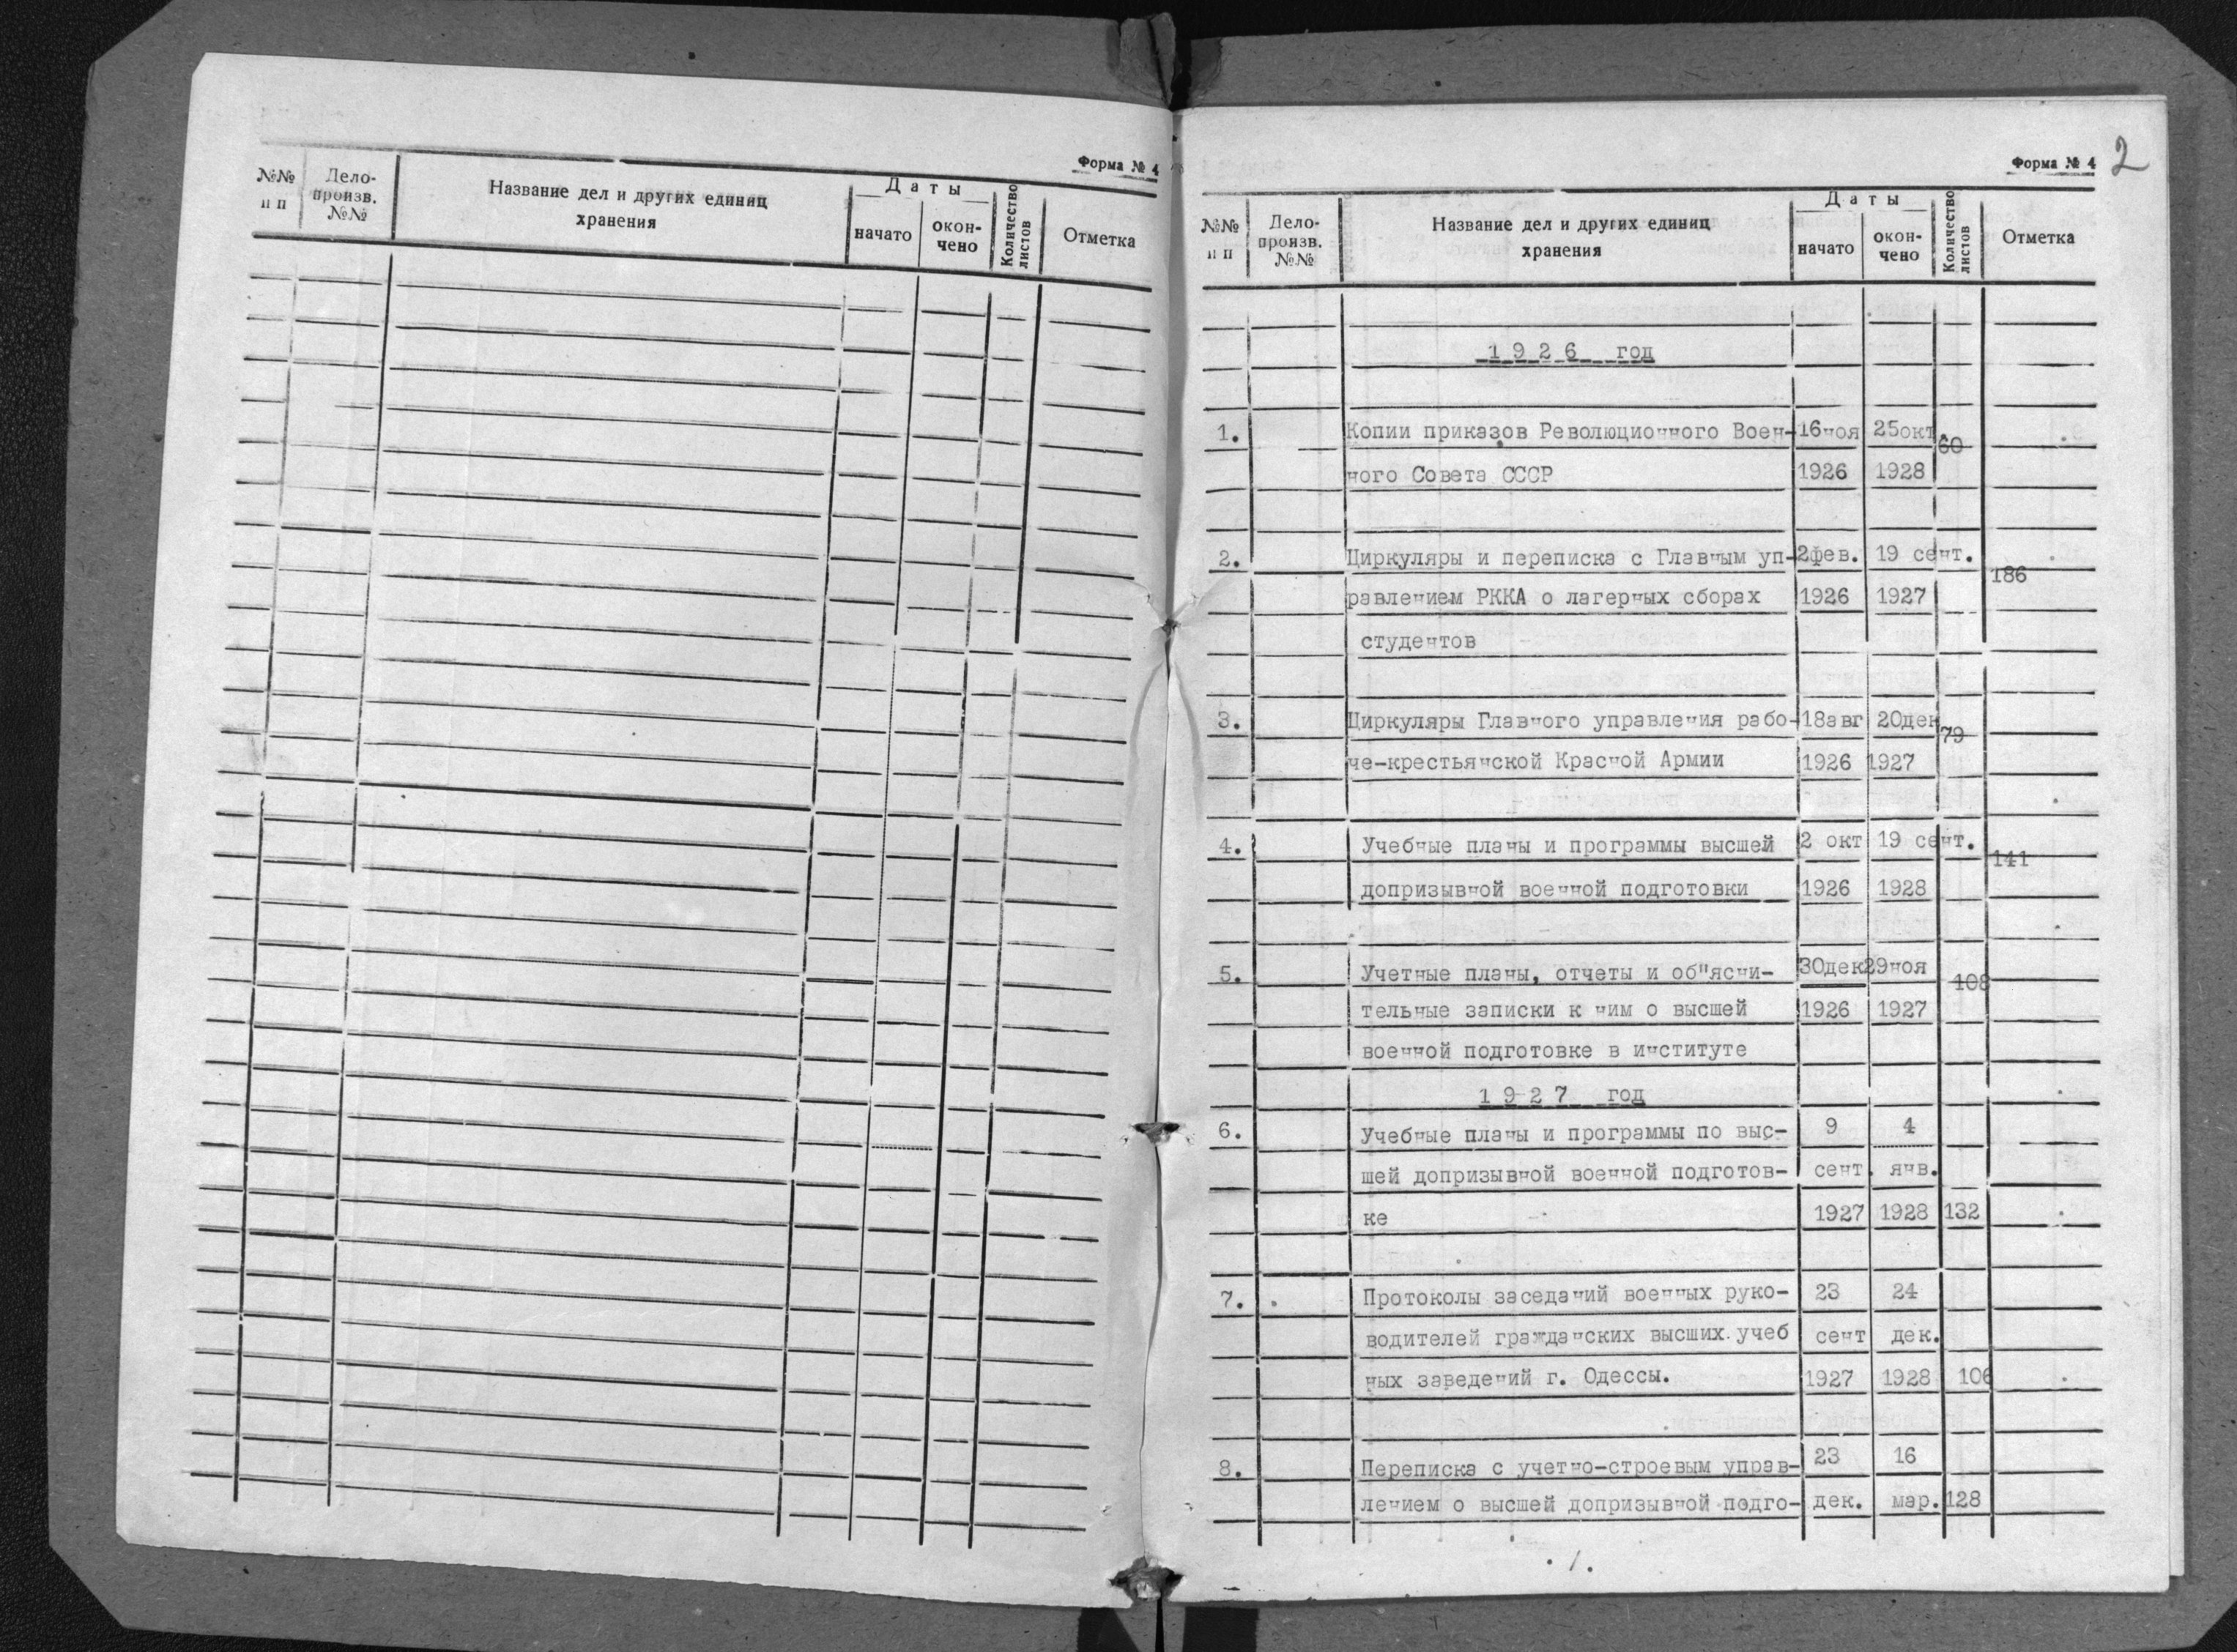 Форма № 4
№№ п п
Дело-произв. №№
Название дел и других единиц хранения
Даты
начато
окон-чено
Количество листов
Отметка
2
Форма № 4
№№ п п
Дело-произв. №№
Название дел и других единиц хранения
Даты
начато
окон-чено
Количество листов
Отметка
1926 год
1. Копии приказов Революционного Воен- 16ноя 25окт. 60
ного Совета СССР 1926 1928
2. Циркуляры и переписка с Главным уп- 2фев. 19 сент. 186
равлением РККА о лагерных сборах 1926 1927
студентов
3. Циркуляры Главного управления рабо- 18авг 20дек 79
че-крестьянской Красной Армии 1926 1927
4. Учебные планы и программы высшей 2 окт 19 сент. 141
допризывной военной подготовки 1926 1928
5. Учетные планы, отчеты и об"ясни- 30дек 29ноя 108
тельные записки к ним о высшей 1926 1927
военной подготовке в институте
1927 год
6. Учебные планы и программы по выс- 9 4
шей допризывной военной подготов- сент. янв.
ке 1927 1928 132
7. Протоколы заседаний военных руко- 23 24
водителей гражданских высших учеб сент дек.
ных заведений г. Одессы. 1927 1928 106
8. Переписка с учетно-строевым управ- 23 16
лением о высшей допризывной подго- дек. мар. 128
./.